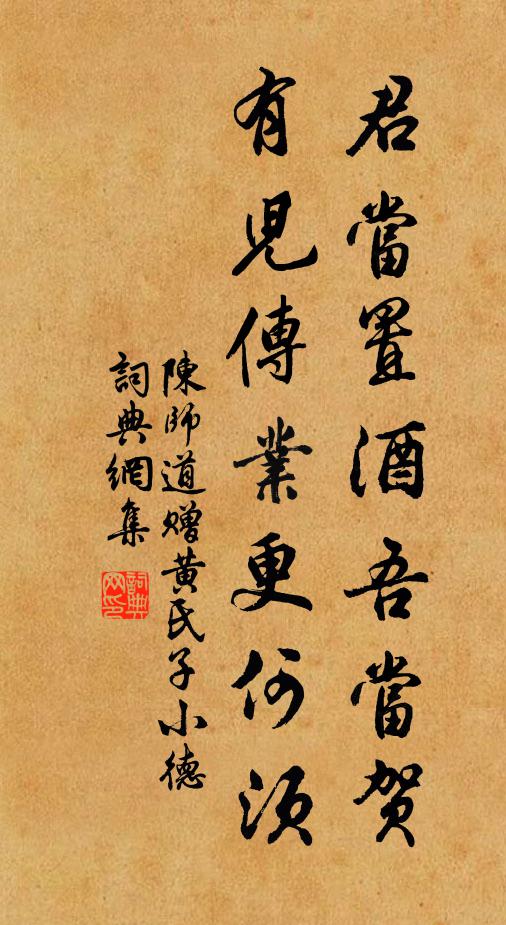 君當置酒吾當賀
有兒傳業更何須
陳師道贈黄氏子小德
詞典網集
詞典
网印